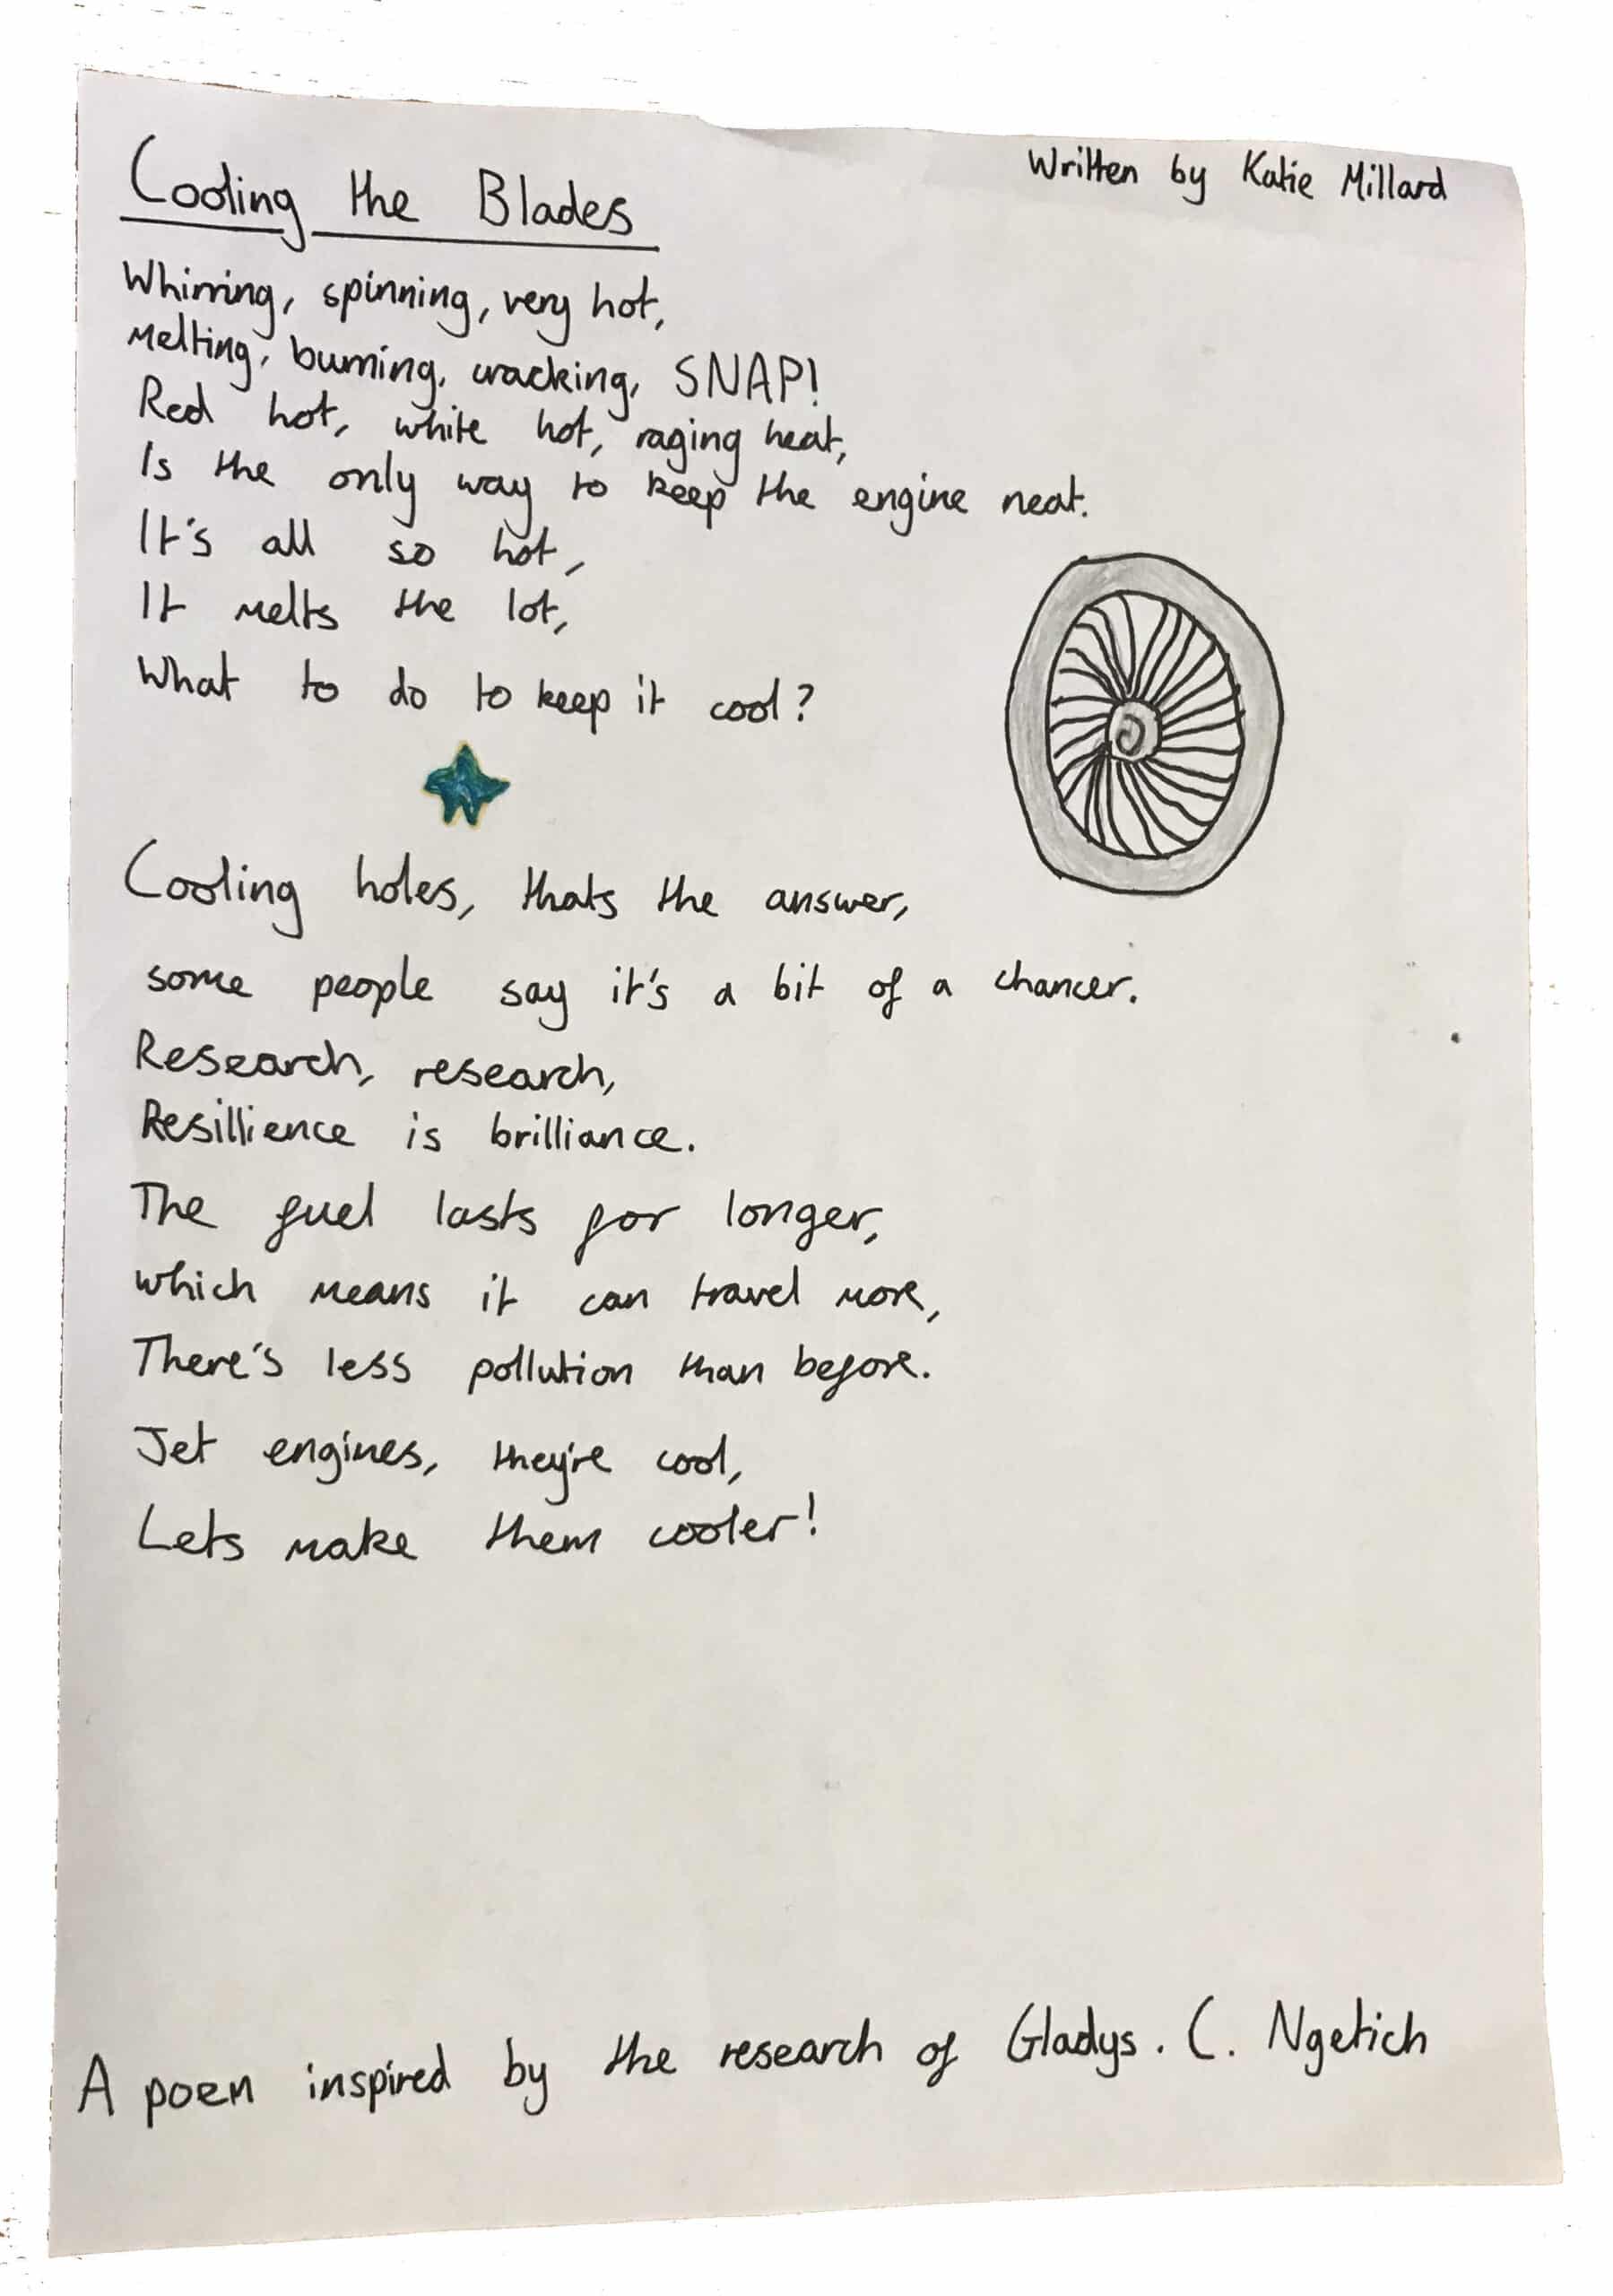 Cooling the Blades
Written by Katie Millard
Whirring, spinning, very hot,
Melting, burning, cracking, SNAP!
Red hot, white hot, raging heat,
Is the only way to keep the engine neat.
It's all so hot,
It melts the lot,
What to do to keep it cool?
Cooling holes, thats the answer,
some people say it's a bit of a chancer.
Research, research,
Resillience is brilliance.
The fuel lasts for longer,
which means it can travel more,
There's less pollution than before.
Jet engines, they're cool,
Lets make them cooler!
A poem inspired by the research of Gladys. C. Ngetich